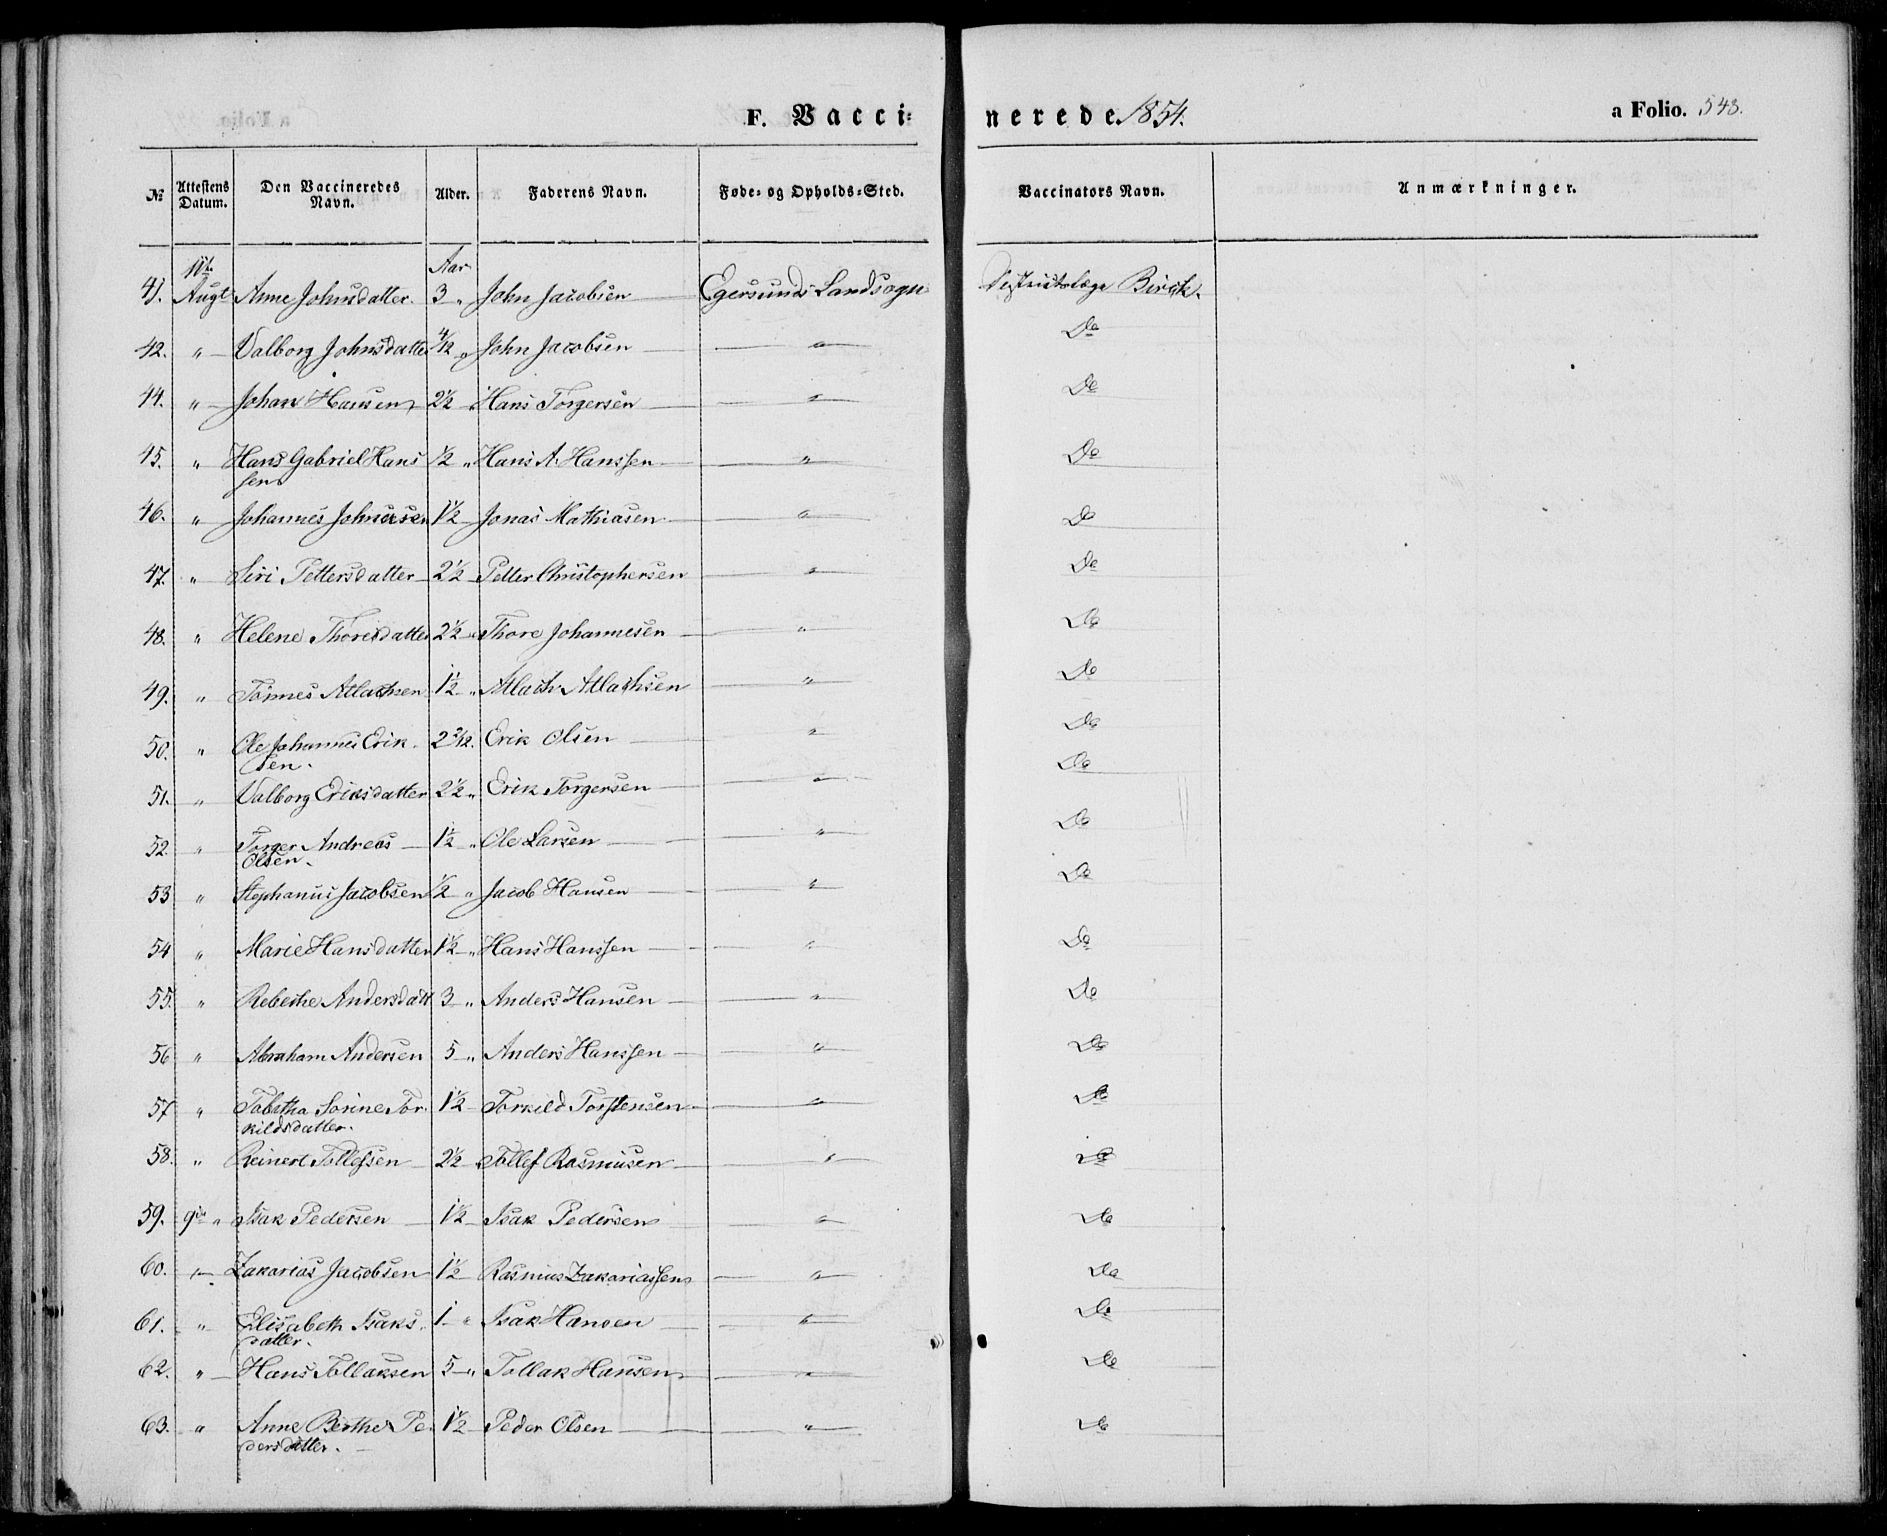 F. Vacci= nerede 1854. a Folio. 543.
№ Attestens Datum. Den Vaccineredes Navn. Alder. Faderens Navn. Føde- og Opholds-Sted. Vaccinators Navn. Anmærkninger.
Aar
41. Augt Anne Johnsdatter 3 " John Jacobsen Egersunds Landsogn Distriktslæge Birck.
42. " Valborg Johnsdatter 4/12 " John Jacobsen " Do
44. " Johan Hansen 2½ Hans Torgersen " Do
45. " Hans Gabriel Hans ½ " Hans A. Hanssen " Do
sen
46. " Johannes 1½ Jonas Mathiasen " Do
47. " Siri Pettersdatter 2½ Petter Christophersen " Do
48. " Helene Thoresdatter 2½ " Thore Johannesen " Do
49. " Tønnes Atlachsen 1½ " Atlach Atlachsen " Do
50. " Ole Johannes Erik 2 3/12. Erik Olsen " Do
sen.
51. " Valborg Eriksdatter 2½ " Erik Torgersen " Do
52. " Torger Andreas 1½ " Ole Larsen " Do
Olsen.
53 " Stephanus Jacobsen ½ " Jacob Hansen " Do
54 " Marie Hansdatter 1½ " Hans Hanssen " Do
55. " Rebecke Andersdatt 3 " Anders Hansen " Do
56 " Abraham Andersen 5 " Anders Hanssen " Do
57 " Tabitha Sorine Tor 1½ Torkild Torstensen " Do
kildsdatter.
58. " Reinert Tollefsen 2½ Tollef Rasmusen " Do
59. 9de " Isak Pedersen 1½ Isak Pedersen " Do
60. " Zakarias Jacobsen 1½ Rasmus Zakariassen " Do
61. " Elisabeth Isaks 1 " Isak Hansen " Do
datter.
62. " Hans Tollaksen 5 " Tollak Hansen " Do
63. " Anne Berthe Pe 1½ Peder Olsen " Do
dersdatter.